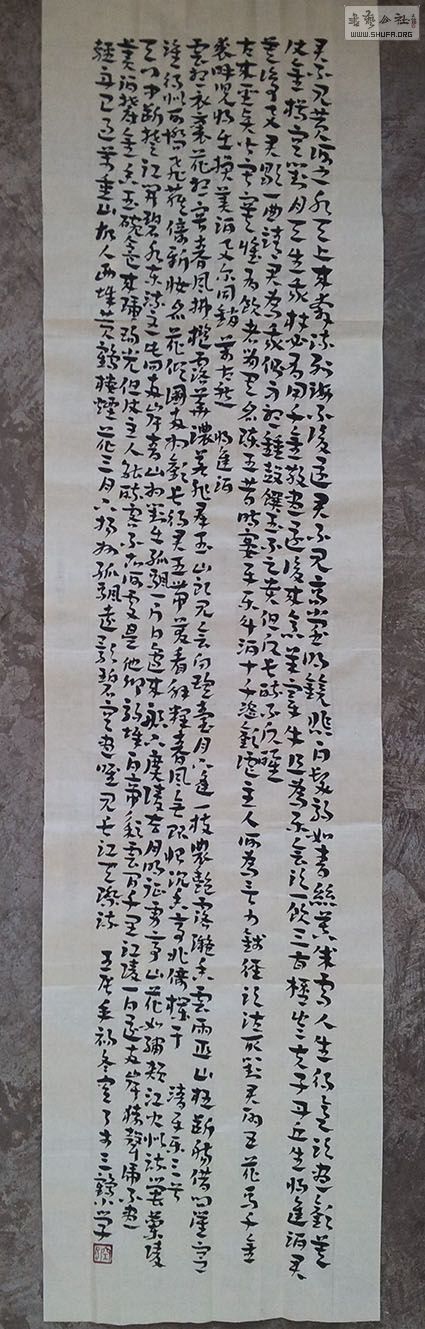 書藝公社
WWW.SHUFA.ORG
君不見黃河之水天上來奔流到海不復還君不見高堂明鏡悲白髮朝如青絲暮成雪人生得意須盡歡莫
使金樽空對月天生我材必有用千金散盡還復來烹羊宰牛且為樂會須一飲三百杯岑夫子丹丘生將進酒君
莫停與君歌一曲請君為我傾耳聽鐘鼓饌玉不足貴但願長醉不願醒
古來聖賢皆寂寞惟有飲者留其名陳王昔時宴平樂斗酒十千恣歡謔主人何為言少錢徑須沽取對君酌五花馬千金
裘呼兒將出換美酒與爾同銷萬古愁 將進酒
雲想衣裳花想容春風拂檻露華濃若非群玉山頭見會向瑤臺月下逢一枝穠艷露凝香雲雨巫山枉斷腸借問漢宮
誰得似可憐飛燕倚新妝名花傾國兩相歡長得君王帶笑看解釋春風無限恨沉香亭北倚欄干 清平樂三首
天門中斷楚江開碧水東流至此回兩岸青山相對出孤帆一片日邊來船下廣陵去月明征虜亭山花如繡頰江火似流螢蘭陵
美酒鬱金香玉碗盛來琥珀光但使主人能醉客不知何處是他鄉朝辭白帝彩雲間千里江陵一日還兩岸猿聲啼不盡
輕舟已過萬重山故人西辭黃鶴樓煙花三月下揚州孤帆遠影碧空盡唯見長江天際流 壬辰年初冬